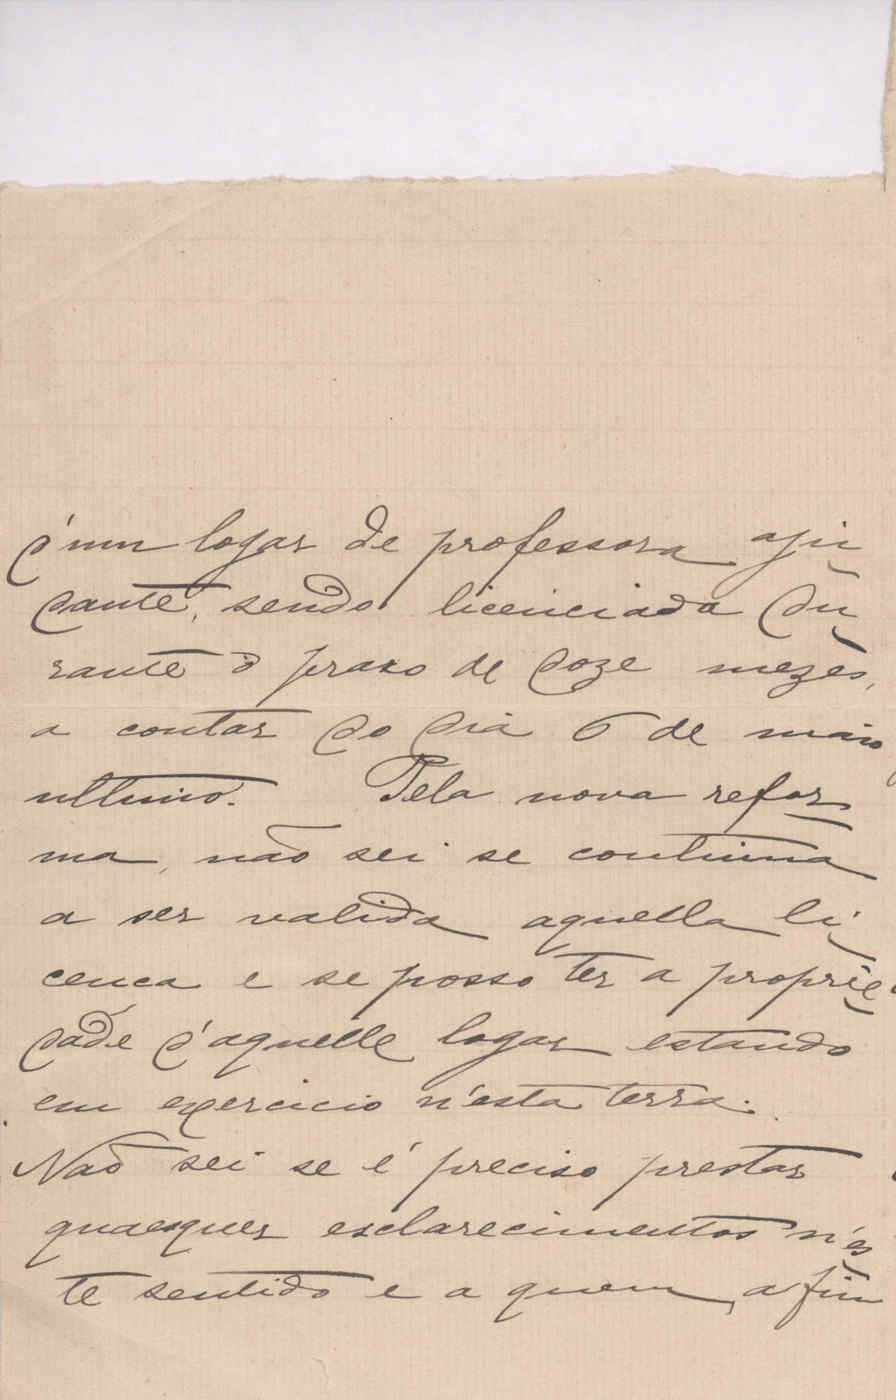 d'um logar de professora aju
dante, sendo licenciada du
rante o praso de doze mezes,
a contar do dia 6 de maio
ultimo. Pela nova refor
ma, não sei se continua
a ser valida aquella li
cenca e se posso ter a proprie
dade d'aquelle logar estando
em exercicio n'esta terra.
Não sei se é preciso prestar
quaesquer esclarecimentos n'es
te sentido e a quem, a fim